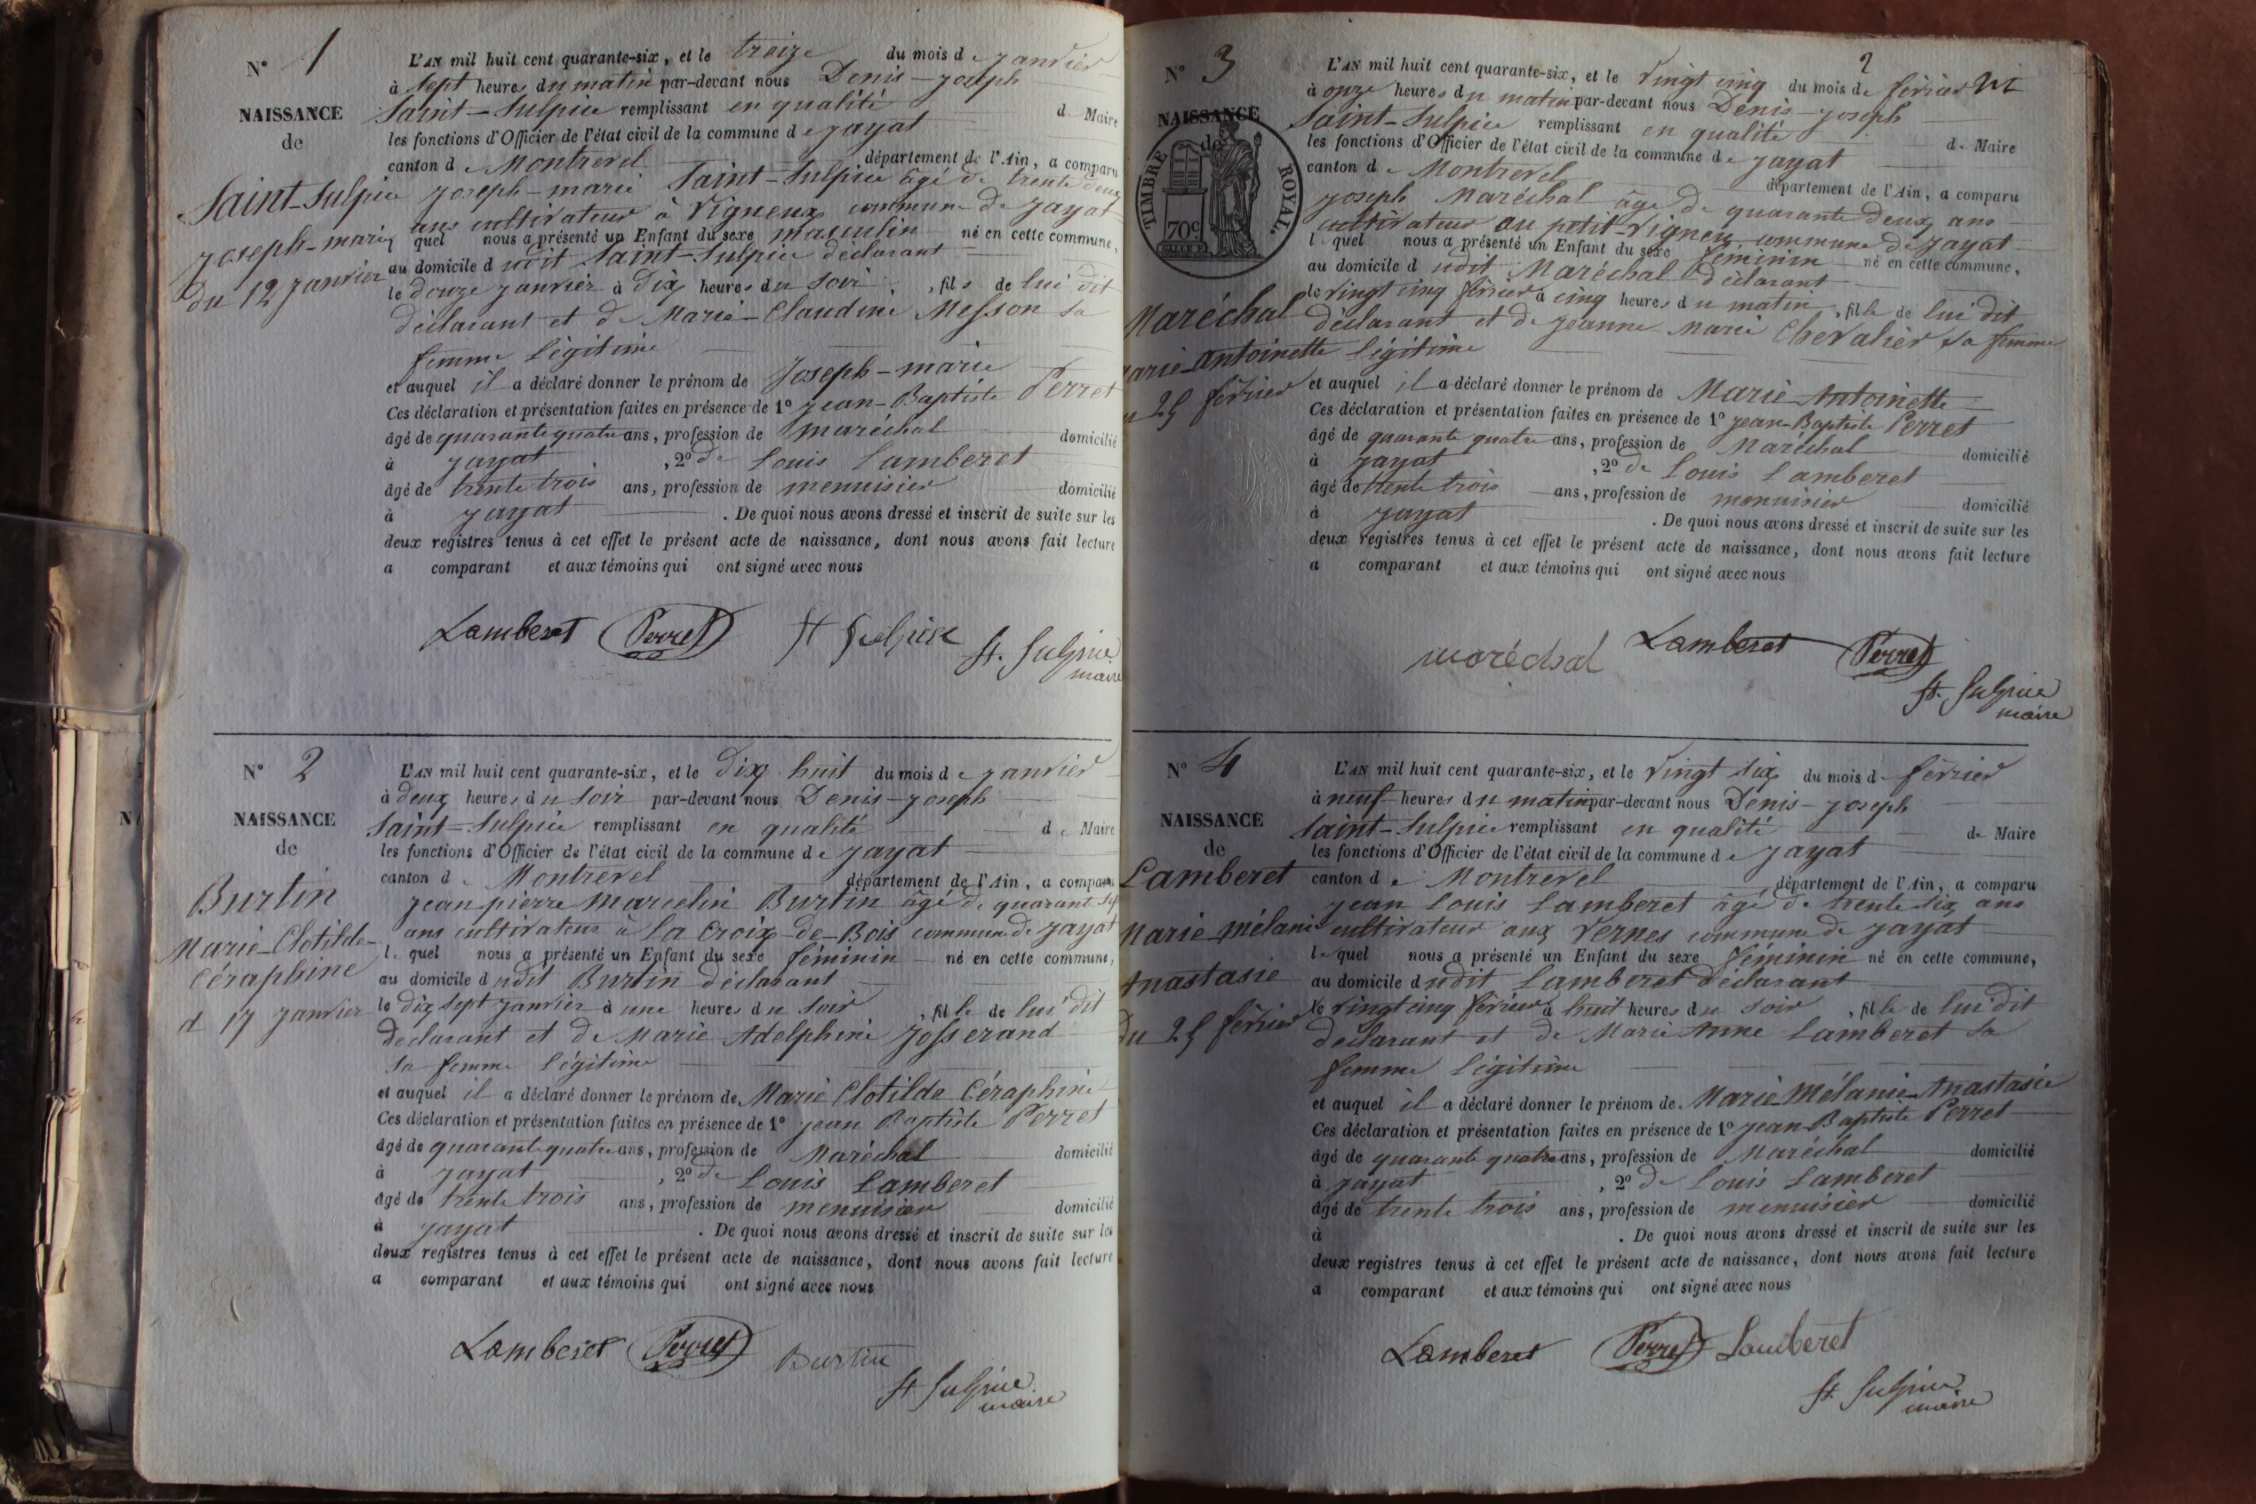 N° 1
NAISSANCE
de
Saint-Sulpice
joseph-marie
du 12 janvier
L'AN mil huit cent quarante-six, et le treize du mois de janvier
à sept heures du matin par-devant nous Denis-joseph
Saint-Sulpice remplissant en qualité de Maire
les fonctions d'Officier de l'état civil de la commune de jayat
canton de Montrevel département de l'Ain, a comparu
joseph-marie Saint-Sulpice âgé de trente deux
ans cultivateur à Vigneux commune de jayat
quel nous a présenté un Enfant du sexe masculin né en cette commune,
au domicile dudit Saint-Sulpice déclarant
le douze janvier à dix heures du soir, fils de lui dit
déclarant et de Marie-Claudine Messon sa
femme légitime
et auquel il a déclaré donner le prénom de Joseph-marie
Ces déclaration et présentation faites en présence de 1° jean-Baptiste Perret
âgé de quarante quatre ans, profession de maréchal domicilié
à jayat, 2° de Louis Lamberet
âgé de trente trois ans, profession de menuisier domicilié
à jayat. De quoi nous avons dressé et inscrit de suite sur les
deux registres tenus à cet effet le présent acte de naissance, dont nous avons fait lecture
a comparant et aux témoins qui ont signé avec nous
Lamberet Perret St Sulpice St. Sulpice
maire
N° 2
NAISSANCE
de
Burtin
Marie-Clotilde-
Céraphine
d 17 janvier
L'AN mil huit cent quarante-six, et le dix huit du mois de janvier
à deux heures du soir par-devant nous Denis-joseph
Saint-Sulpice remplissant en qualité de Maire
les fonctions d'Officier de l'état civil de la commune de jayat
canton de Montrevel département de l'Ain, a comparu
jean pierre Marcelin Burtin âgé de quarant sept
ans cultivateur à La Croix-de-Bois commune de jayat
lequel nous a présenté un Enfant du sexe féminin né en cette commune,
au domicile dudit Burtin déclarant
le dix sept janvier à une heures du soir, fille de lui dit
déclarant et de Marie Adelphine Josserand
sa femme légitime
et auquel il a déclaré donner le prénom de Marie Clotilde Céraphine
Ces déclaration et présentation faites en présence de 1° jean Baptiste Perret
âgé de quarante quatre ans, profession de Maréchal domicilié
à jayat, 2° de Louis Lamberet
âgé de trente trois ans, profession de menuisier domicilié
à jayat. De quoi nous avons dressé et inscrit de suite sur les
deux registres tenus à cet effet le présent acte de naissance, dont nous avons fait lecture
a comparant et aux témoins qui ont signé avec nous
Lamberet Perret Burtin
St Sulpice
maire
2
N° 3
NAISSANCE
de
TIMBRE ROYAL.
70c
Maréchal
arie-Antoinette
u 25 février
L'AN mil huit cent quarante-six, et le vingt cinq du mois de février
à onze heures du matin par-devant nous Denis-joseph
Saint-Sulpice remplissant en qualité de Maire
les fonctions d'Officier de l'état civil de la commune de jayat
canton de Montrevel département de l'Ain, a comparu
joseph Maréchal âgé de quarante deux ans
cultivateur au petit-Vigneux commune de jayat
lequel nous a présenté un Enfant du sexe féminin né en cette commune,
au domicile dudit Maréchal déclarant
le vingt cinq février à cinq heures du matin, fille de lui dit
déclarant et de jeanne Marie Chevalier sa femme
légitime
et auquel il a déclaré donner le prénom de Marie-Antoinette
Ces déclaration et présentation faites en présence de 1° jean-Baptiste Perret
âgé de quarante quatre ans, profession de Maréchal domicilié
à jayat, 2° de Louis Lamberet
âgé de trente trois ans, profession de menuisier domicilié
à jayat. De quoi nous avons dressé et inscrit de suite sur les
deux registres tenus à cet effet le présent acte de naissance, dont nous avons fait lecture
a comparant et aux témoins qui ont signé avec nous
maréchal Lamberet Perret
St. Sulpice
maire
N° 4
NAISSANCE
de
Lamberet
Marie-Mélanie
Anastasie
du 25 février
L'AN mil huit cent quarante-six, et le vingt six du mois d février
à neuf heures du matin par-devant nous Denis-joseph
Saint-Sulpice remplissant en qualité de Maire
les fonctions d'Officier de l'état civil de la commune de jayat
canton de Montrevel département de l'Ain, a comparu
jean Louis Lamberet âgé de trente six ans
cultivateur aux Vernes commune de jayat
lequel nous a présenté un Enfant du sexe féminin né en cette commune,
au domicile dudit Lamberet déclarant
le vingt cinq février à huit heures du soir, fille de lui dit
déclarant et de Marie Anne Lamberet sa
femme légitime
et auquel il a déclaré donner le prénom de Marie-Mélanie-Anastasie
Ces déclaration et présentation faites en présence de 1° jean-Baptiste Perret
âgé de quarante quatre ans, profession de Maréchal domicilié
à jayat, 2° de Louis Lamberet
âgé de trente trois ans, profession de menuisier domicilié
à . De quoi nous avons dressé et inscrit de suite sur les
deux registres tenus à cet effet le présent acte de naissance, dont nous avons fait lecture
a comparant et aux témoins qui ont signé avec nous
Lamberet Perret Lamberet
St. Sulpice
maire